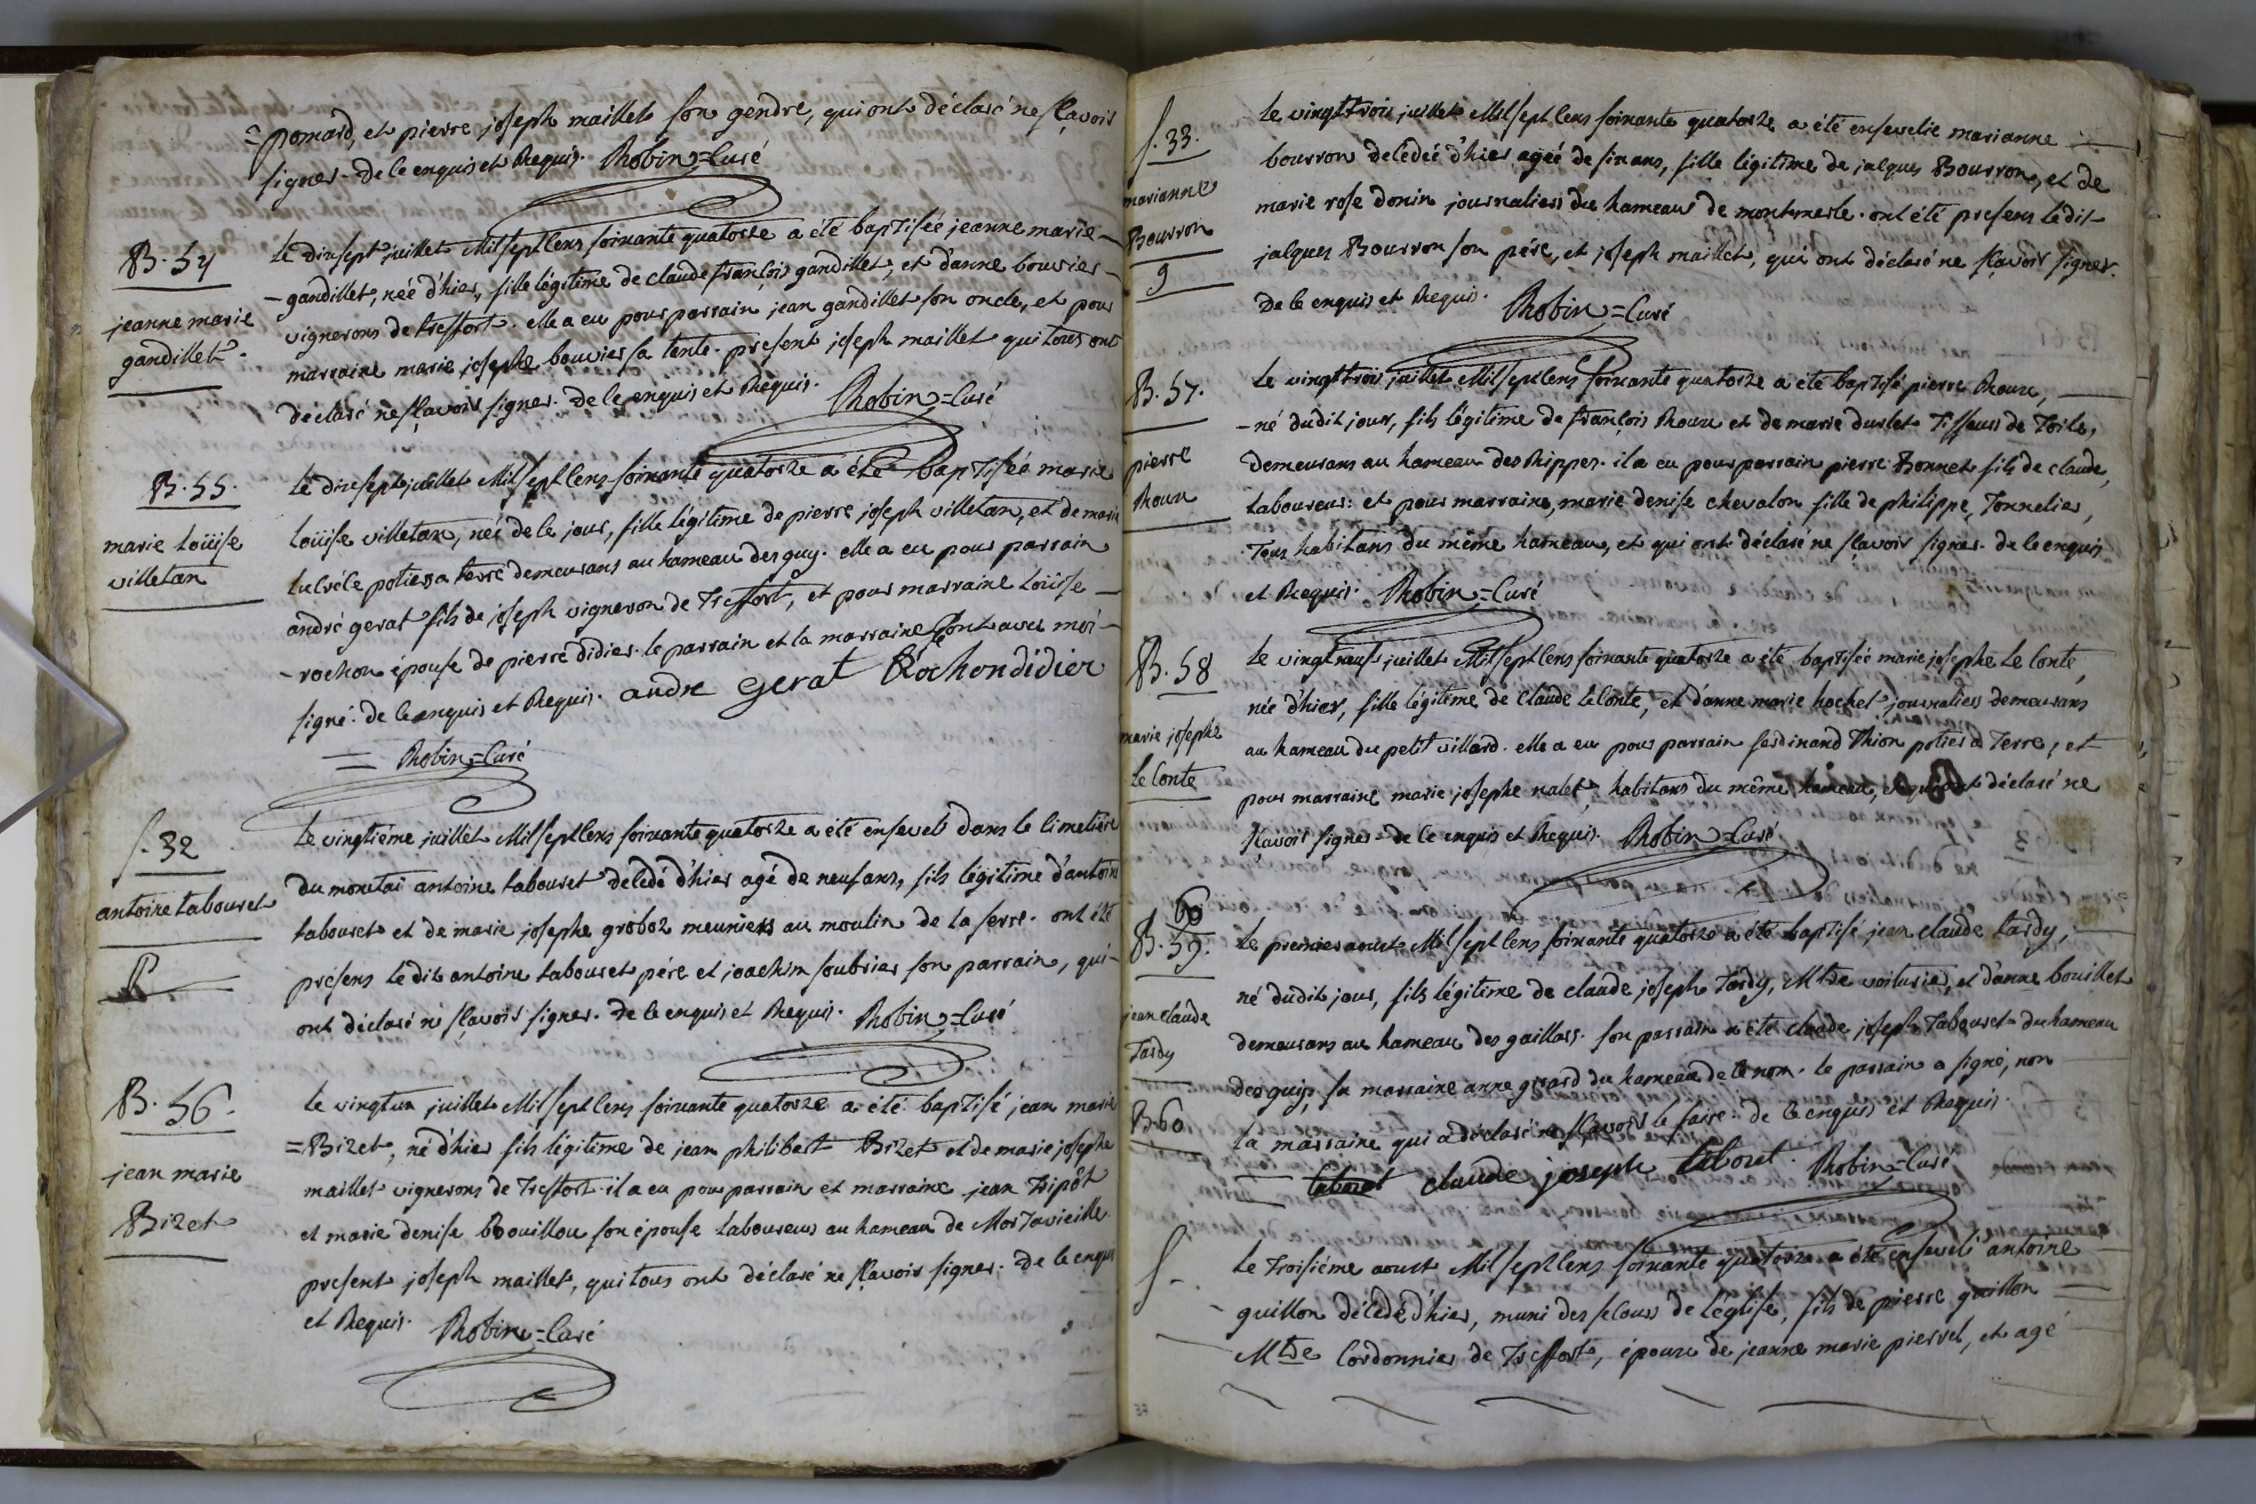 =pomard, et pierre joseph maillet son gendre, qui ont déclaré ne sçavoir
signer. de ce enquis et Requis. Robin=Curé
B. 54
jeanne marie
gandillet.
Le dixsept juillet Mil sept cens soixante quatorze a été baptisée jeanne marie
-gandillet, neé d'hier, fille légitime de claude françois gandillet, et d'anne bouvier
vignerons de treffort. elle a eu pour parrain jean gandillet son oncle, et pour
marraine marie josephe bouvier sa tente. present joseph maillet qui tous ont
déclaré ne sçavoir signer. De ce enquis et Requis. Robin=Curé
B. 55.
marie Loüise
villetan
Le dixsept juillet Mil sept cens soixante quatorze a été baptisée marie
Loüise villetan, neé de ce jour, fille légitime de pierre joseph villetan, et de marie
lucréce potiers a terre demeurans au hameau des guy. elle a eu pour parrain
andré gerat fils de joseph vigneron de Treffort, et pour marraine Loüise
-rochon épouse de pierre didier. le parrain et la marraine sont avec moi
signé. de ce enquis et Requis. andre gerat Rochondidier
= Robin=Curé
S. 32
antoine tabouret
P
Le vingtiéme juillet Mil sept cens soixante quatorze a été enseveli dans le cimetiére
du monetaÿ antoine tabouret décedé d'hier agé de neuf ans, fils légitime d'antoine
tabouret et de marie josephe groboz meuniers au moulin de la serre. ont été
présens ledit antoine tabouret pére et joachim soubrier son parrain, qui
ont déclaré ne sçavoir signer. De ce enquis et Requis. Robin=Curé
B. 56.
jean marie
Bizet
Le vingtun juillet Mil sept cens soixante quatorze a été baptisé jean marie
=Bizet, né d'hier fils légitime de jean philibert Bizet et de marie josephe
maillet vignerons de Treffort. il a eu pour parrain et marraine jean Tripôt
et marie denise Bouillou son épouse laboureurs au hameau de Mortavieille
present joseph maillet, qui tous ont déclaré ne sçavoir signer. De ce enquis
et Requis. Robin=Curé
S. 33.
marianne
Bourron
9
Le vingttrois juillet Mil sept cens soixante quatorze a été ensevelie marianne
bourron décedeé d'hier ageé de six ans, fille légitime de jacques Bourron, et de
marie rose donin journaliers du hameau de montmerle. ont été presens ledit
jacques Bourron son pére, et joseph maillet, qui ont déclaré ne sçavoir signer.
De ce enquis et Requis. Robin=Curé
B. 57.
pierre
Roux
Le vingttrois juillet Mil sept cens soixante quatorze a été baptisé pierre Roux,
-né dudit jour, fils légitime de françois Roux et de marie durlet Tisseurs de Toile,
demeurans au hameau des Rippes. il a eu pour parrain pierre Bonnet fils de claude,
laboureur: et pour marraine, marie denise chevalon fille de philippe, Tonnelier,
Tous habitans du même hameau, et qui ont déclaré ne sçavoir signer. de ce enquis
et Requis. Robin=Curé
B. 58
marie josephe
Le Conte
Le vingt neuf juillet Mil sept cens soixante quatorze a été baptisée marie josephe Le Conte,
née d'hier, fille légitime de Claude Le Conte, et d'anne marie hochet, journaliers demeurans
au hameau du petit villard. elle a eu pour parrain ferdinand Thion potier a Terre, et
pour marraine marie josephe nalet, habitans du même hameau, et qui ont déclaré ne
sçavoir signer - de ce enquis et Requis. Robin=Curé
60
B. 59.
jean claude
Tardy
B. 60
Le premier aoust Mil sept cens soixante quatorze a été baptisé jean claude tardy,
né dudit jour, fils légitime de claude joseph Tardy, Mtde voiturier, et d'anne bouillet
demeurans au hameau des gaillars. son parrain a été claude joseph Tabouret du hameau
des guys, sa marraine anne girard du hameau de ce nom. le parrain a signé, non
la marraine qui a déclaré ne sçavoir le faire. de ce enquis et Requis.
tabouret claude joseph tabouret. Robin=Curé
S.
Le Troisiéme aoust Mil sept cens soixante quatorze a été enseveli antoine
guillon décedé d'hier, muni des secours de l'église, fils de pierre guillon
Mtde Cordonnier de Treffort, époux de jeanne marie pierrel, et agé